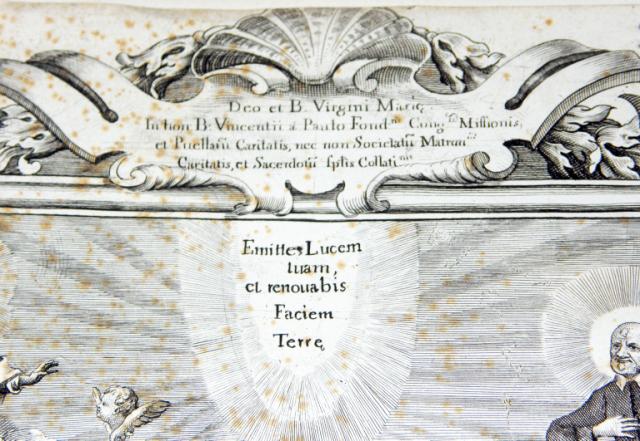 Deo et B. Virgini Marię
In hon B. Vincentii á Paulo Fond.ris Cong.nis Missionis,
et Puellarū Caritatis, nec non Societatū Matron
Caritatis, et Sacerdotū Collati
Emittes Lucem
tuam,
et renouabis
Faciem
Terrę